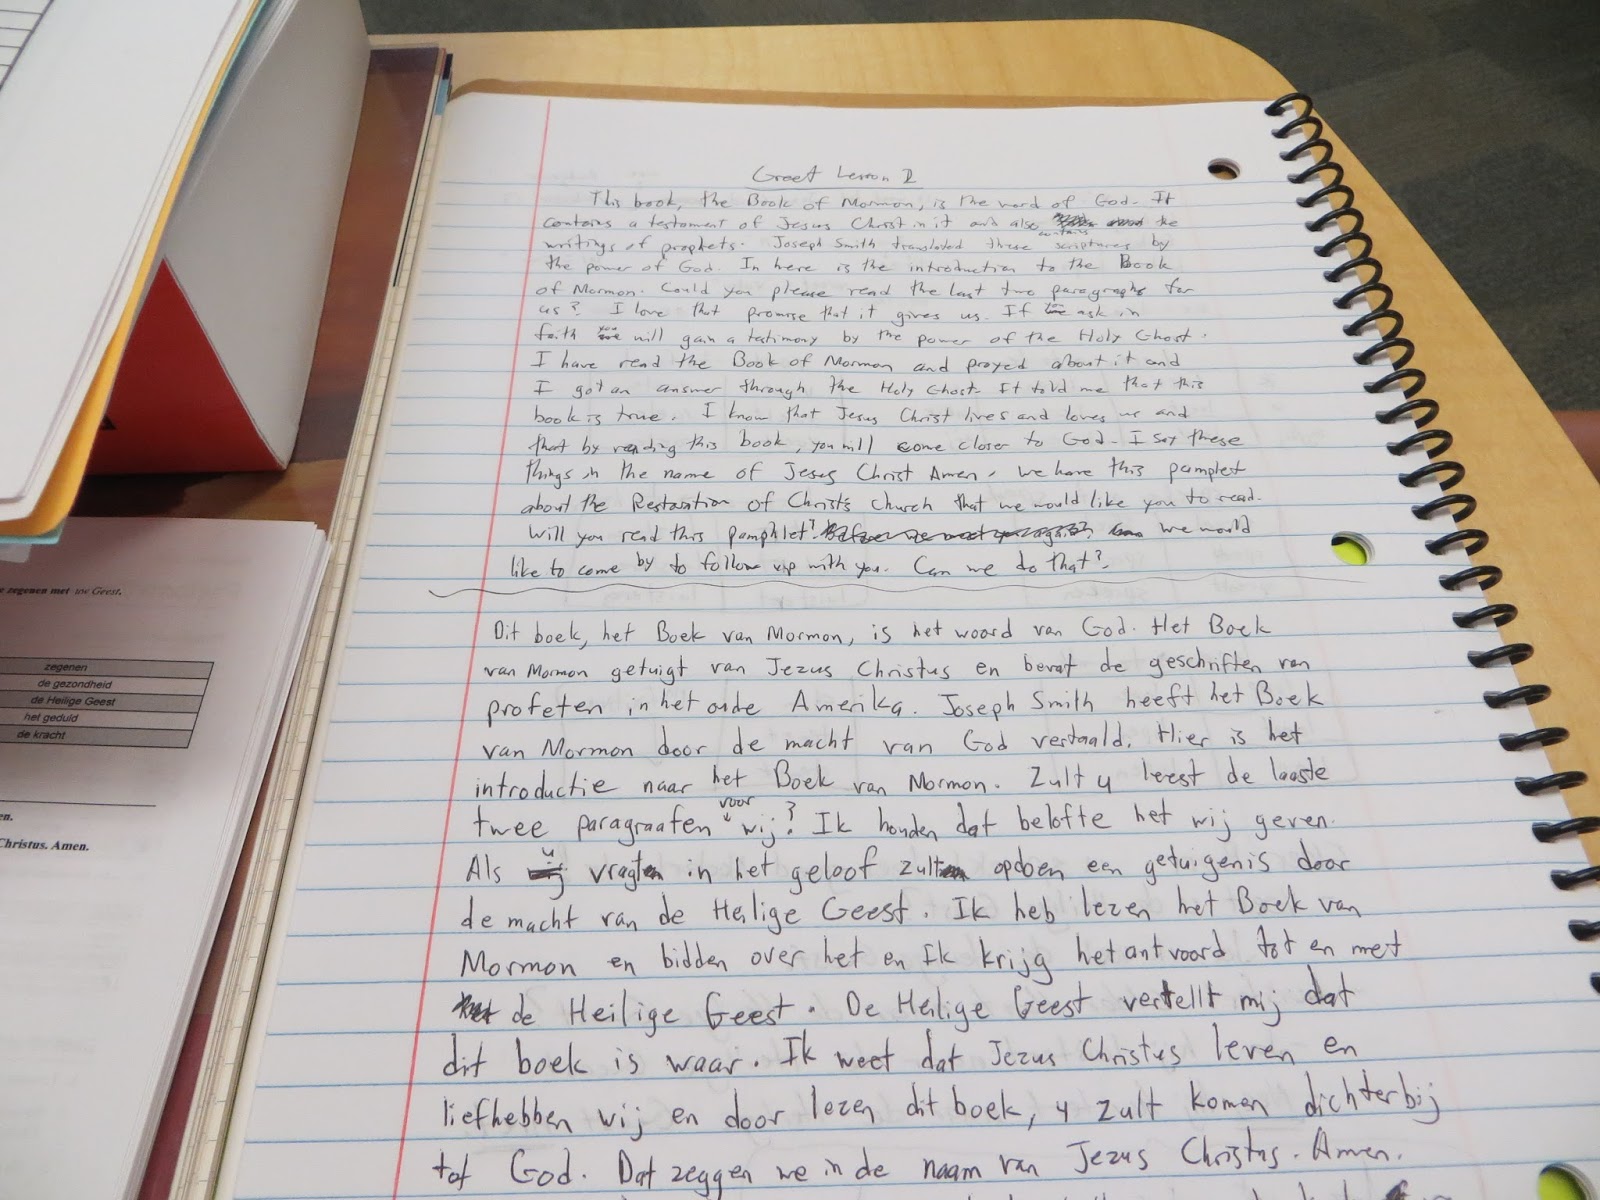 e zegenen met uw Geest.
zegenen
de gezondheid
de Heilige Geest
het geduld
de kracht
en.
Christus. Amen.
Greet Lesson 2
This book, the Book of Mormon, is the word of God. It
contains a testament of Jesus Christ in it and also contains the
writings of prophets. Joseph Smith translated these scriptures by
the power of God. In here is the introduction to the Book
of Mormon. Could you please read the last two paragraphs for
us? I love that promise that it gives us. If you ask in
faith you will gain a testimony by the power of the Holy Ghost.
I have read the Book of Mormon and prayed about it and
I got an answer through the Holy Ghost. It told me that this
book is true. I know that Jesus Christ lives and loves us and
that by reading this book, you will come closer to God. I say these
things in the name of Jesus Christ Amen. We have this pamplet
about the Restoration of Christ's church that we would like you to read.
Will you read this pamphlet? Before we meet you again? We would
like to come by to follow up with you. Can we do that?
Dit boek, het Boek van Mormon, is het woord van God. Het Boek
van Mormon getuigt van Jezus Christus en bevat de geschriften van
profeten in het oude Amerika. Joseph Smith heeft het Boek
van Mormon door de macht van God vertaald. Hier is het
introductie naar het Boek van Mormon. Zult u leest de laaste
twee paragraafen voor wij? Ik houden dat belofte het wij geven.
Als u vragten in het geloof zult opdoen een getuigenis door
de macht van de Heilige Geest. Ik heb lezen het Boek van
Mormon en bidden over het en Ik krijg het antvoord tot en met
de Heilige Geest. De Heilige Geest vertellt mij dat
dit boek is waar. Ik weet dat Jezus Christus leven en
liefhebben wij en door lezen dit boek, u zult komen dichterbij
tot God. Dat zeggen we in de naam van Jezus Christus. Amen.